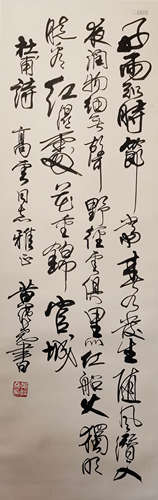 好雨知時節當春乃發生隨風潛入
夜潤物細無聲野徑雲俱黑江船火獨明
曉看紅濕處花重錦官城
杜甫詩 高雲同志雅正 黄書